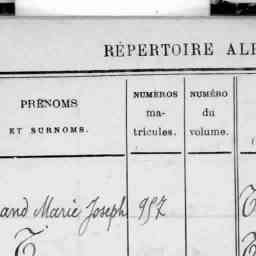 RÉPERTOIRE ALP
PRÉNOMS
ET SURNOMS.
NUMÉROS
ma-
tricules.
NUMÉRO
du
volume.
and Marie Joseph 957
T